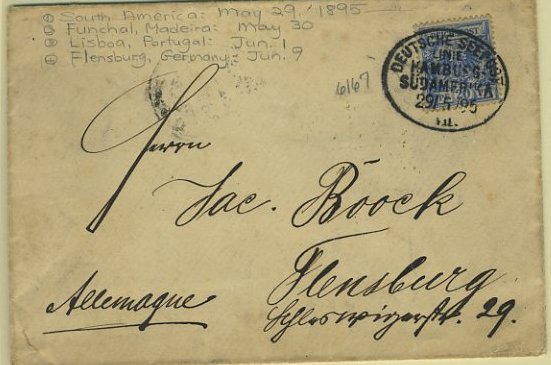 ① South America: May 29, 1895
② Funchal, Madeira: May 30
③ Lisboa, Portugal: Jun. 1
④ Flensburg, Germany: Jun. 9
6167
DEUTSCHE SEEPOST
LINIE
HAMBURG-
SÜDAMERIKA
29/5 95
VII.
Herrn
Jac. Böock
Flensburg
Allemagne
Schleswigerstr. 29.